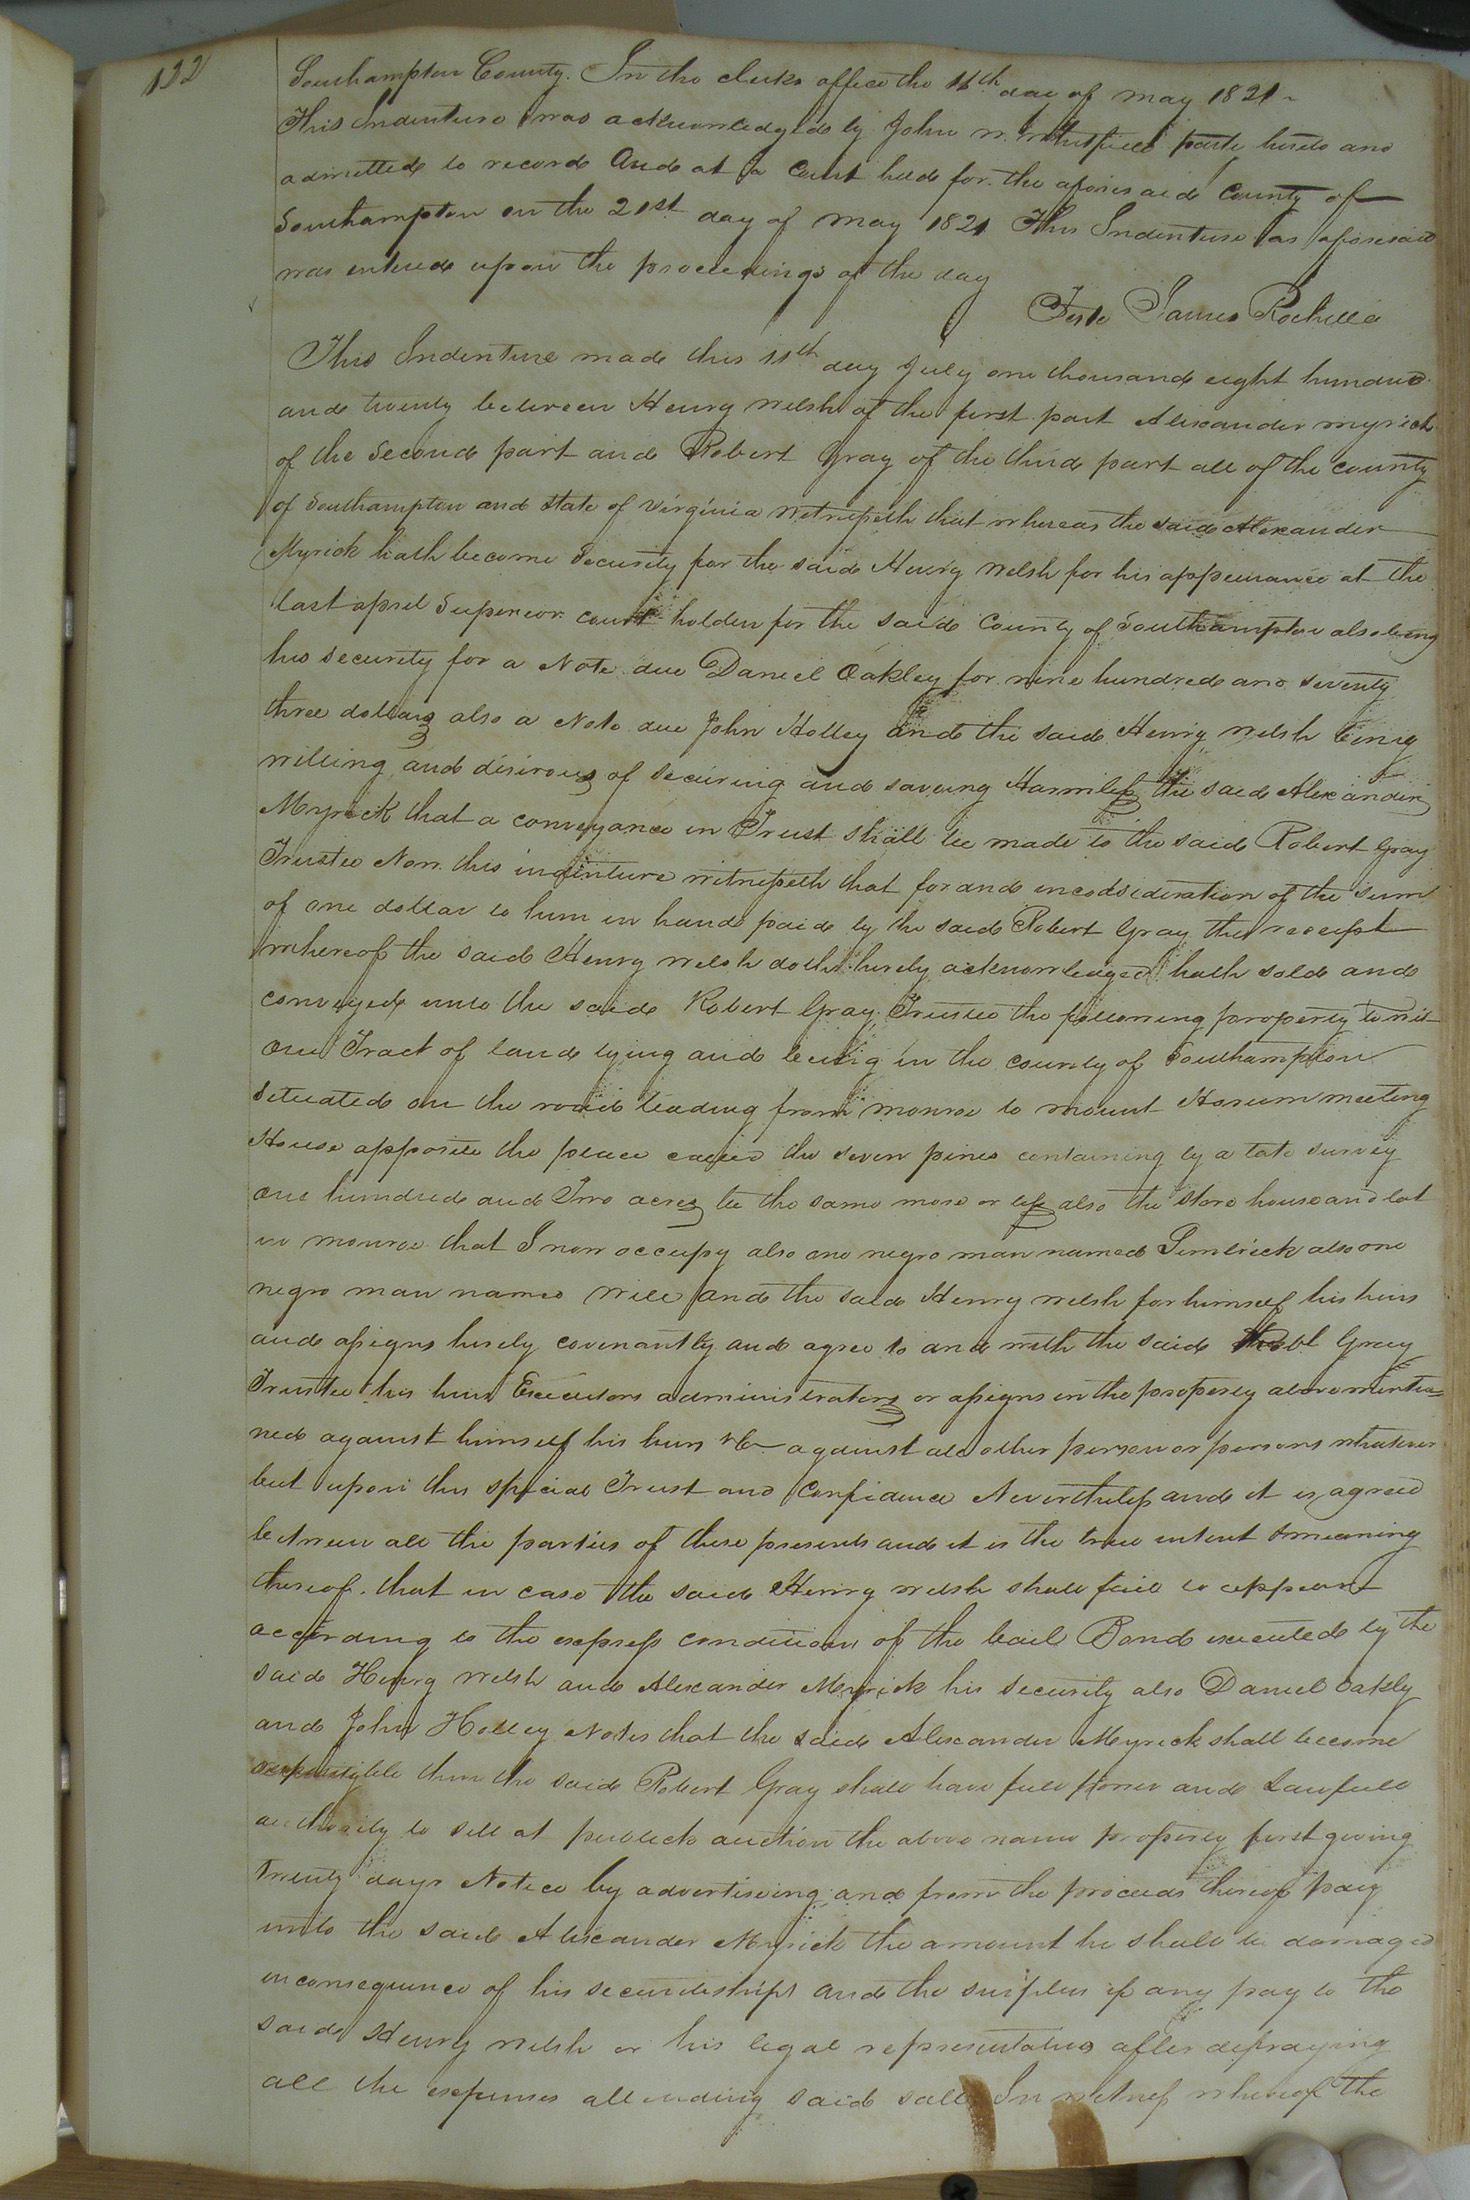 122
Southampton County. In the clerks office the 11th day of may 1821 -
This Indenture was acknowledged by John W. Whitfield party hereto and
admitted to record And at a Court held for the aforesaid County of
Southampton on the 21st day of may 1821 This Indenture as aforesaid
was entered upon the proceedings of the day
Teste James Rochelle
This Indenture made this 11th day July one thousand eight hundred
and twenty between Henry Welsh of the first part Alexander myrick
of the Second part and Robert Gray of the third part all of the county
of Southampton and State of Virginia Witnesseth that whereas the said Alexander
Myrick hath become Security for the said Henry Welsh for his appearance at the
last april Superior court holden for the said County of Southampton also being
his security for a Note due Daniel Oakley for nine hundred and seventy
three dollars also a Note due John Holley and the said Henry Welsh being
willing and disirous of securing and saveing Harmless the said Alexander
Myrick that a conveyance in Trust shall be made to the said Robert Gray
Trustee Now this indenture witnesseth that for and in consideration of the sum
of one dollar to him in hand paid by the said Robert Gray the receipt
whereof the said Henry Welsh doth hereby acknowledged hath sold and
conveyed unto the said Robert Gray Trustee the following property to wit
One Tract of land lying and being in the county of Southampton
Situated on the road leading from monroe to mount Horeum meeting
House opposite the place called the seven pines containing by a late survey
One hundred and Two acres be the same more or less also the store house and lot
in monroe that I now occupy also one negro man named Limbrick also one
negro man named Will and the said Henry Welsh for himself his heirs
and assigns hereby covenantly and agree to and with the said Robt Gray
Trustee his heirs Executors administrators or assigns in the property above mentio=
ned against himself his heirs &c against all other person or persons whatever
but upon this special Trust and Confidence Nevertheless and it is agreed
between all the parties of these presents and it is the true intent & meaning
thereof. that in case the said Henry Welsh shall fail to appear
according to the express conditions of the bail Bond executed by the
said Henry Welsh and Alexander Myrick his security also Daniel Oakly
and John Holley Notes that the said Alexander Myrick shall become
then the said Robert Gray shall have full power and Lawfull
authority to sell at publick auction the above name property first giving
Twenty days Notice by advertiseing and from the proceeds thereof pay
unto the said Alexander Myrick the amount he shall be damaged
in consequence of his securiteships and the surplus if any pay to the
said Henry Welsh or his legal representatives after defraying
all the expenses attending said sale In witness whereof the